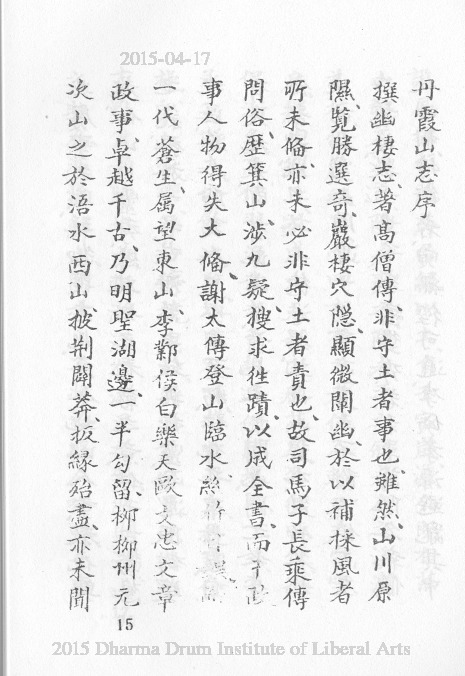 2015-04-17
丹霞山志序
撰幽棲志、著高僧傳、非守土者事也、雖然、山川原
隰、覽勝選竒、巖棲穴隐、顯微闡幽、於以補採風者
所未俻、亦未必非守土者責也、故司馬子長乘傳
問俗、歷箕山、涉九疑、搜求徃蹟、以成全書、而于政
事人物得失大俻、謝太傅登山臨水、絲
一代蒼生、屬望東山、李鄴侯白樂天歐文忠文章
政事、卓越千古、乃明聖湖邊、一半勾留、柳柳州元
次山之於浯水西山、披荆闢莽、扳緣殆盡、亦未聞
15
2015 Dharma Drum Institute of Liberal Arts